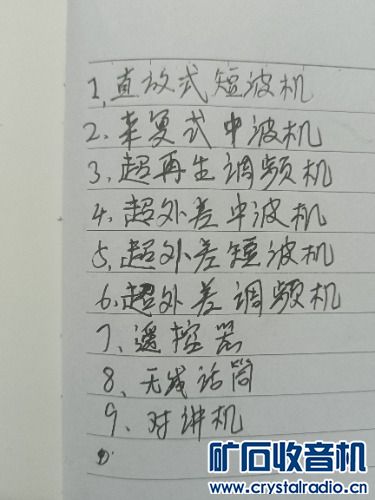 1、直放式短波机
2、来复式中波机
3、超再生调频机
4、超外差中波机
5、超外差短波机
6、超外差调频机
7、遥控器
8、无线话筒
9、对讲机
矿石收音机
www.crystalradio.cn